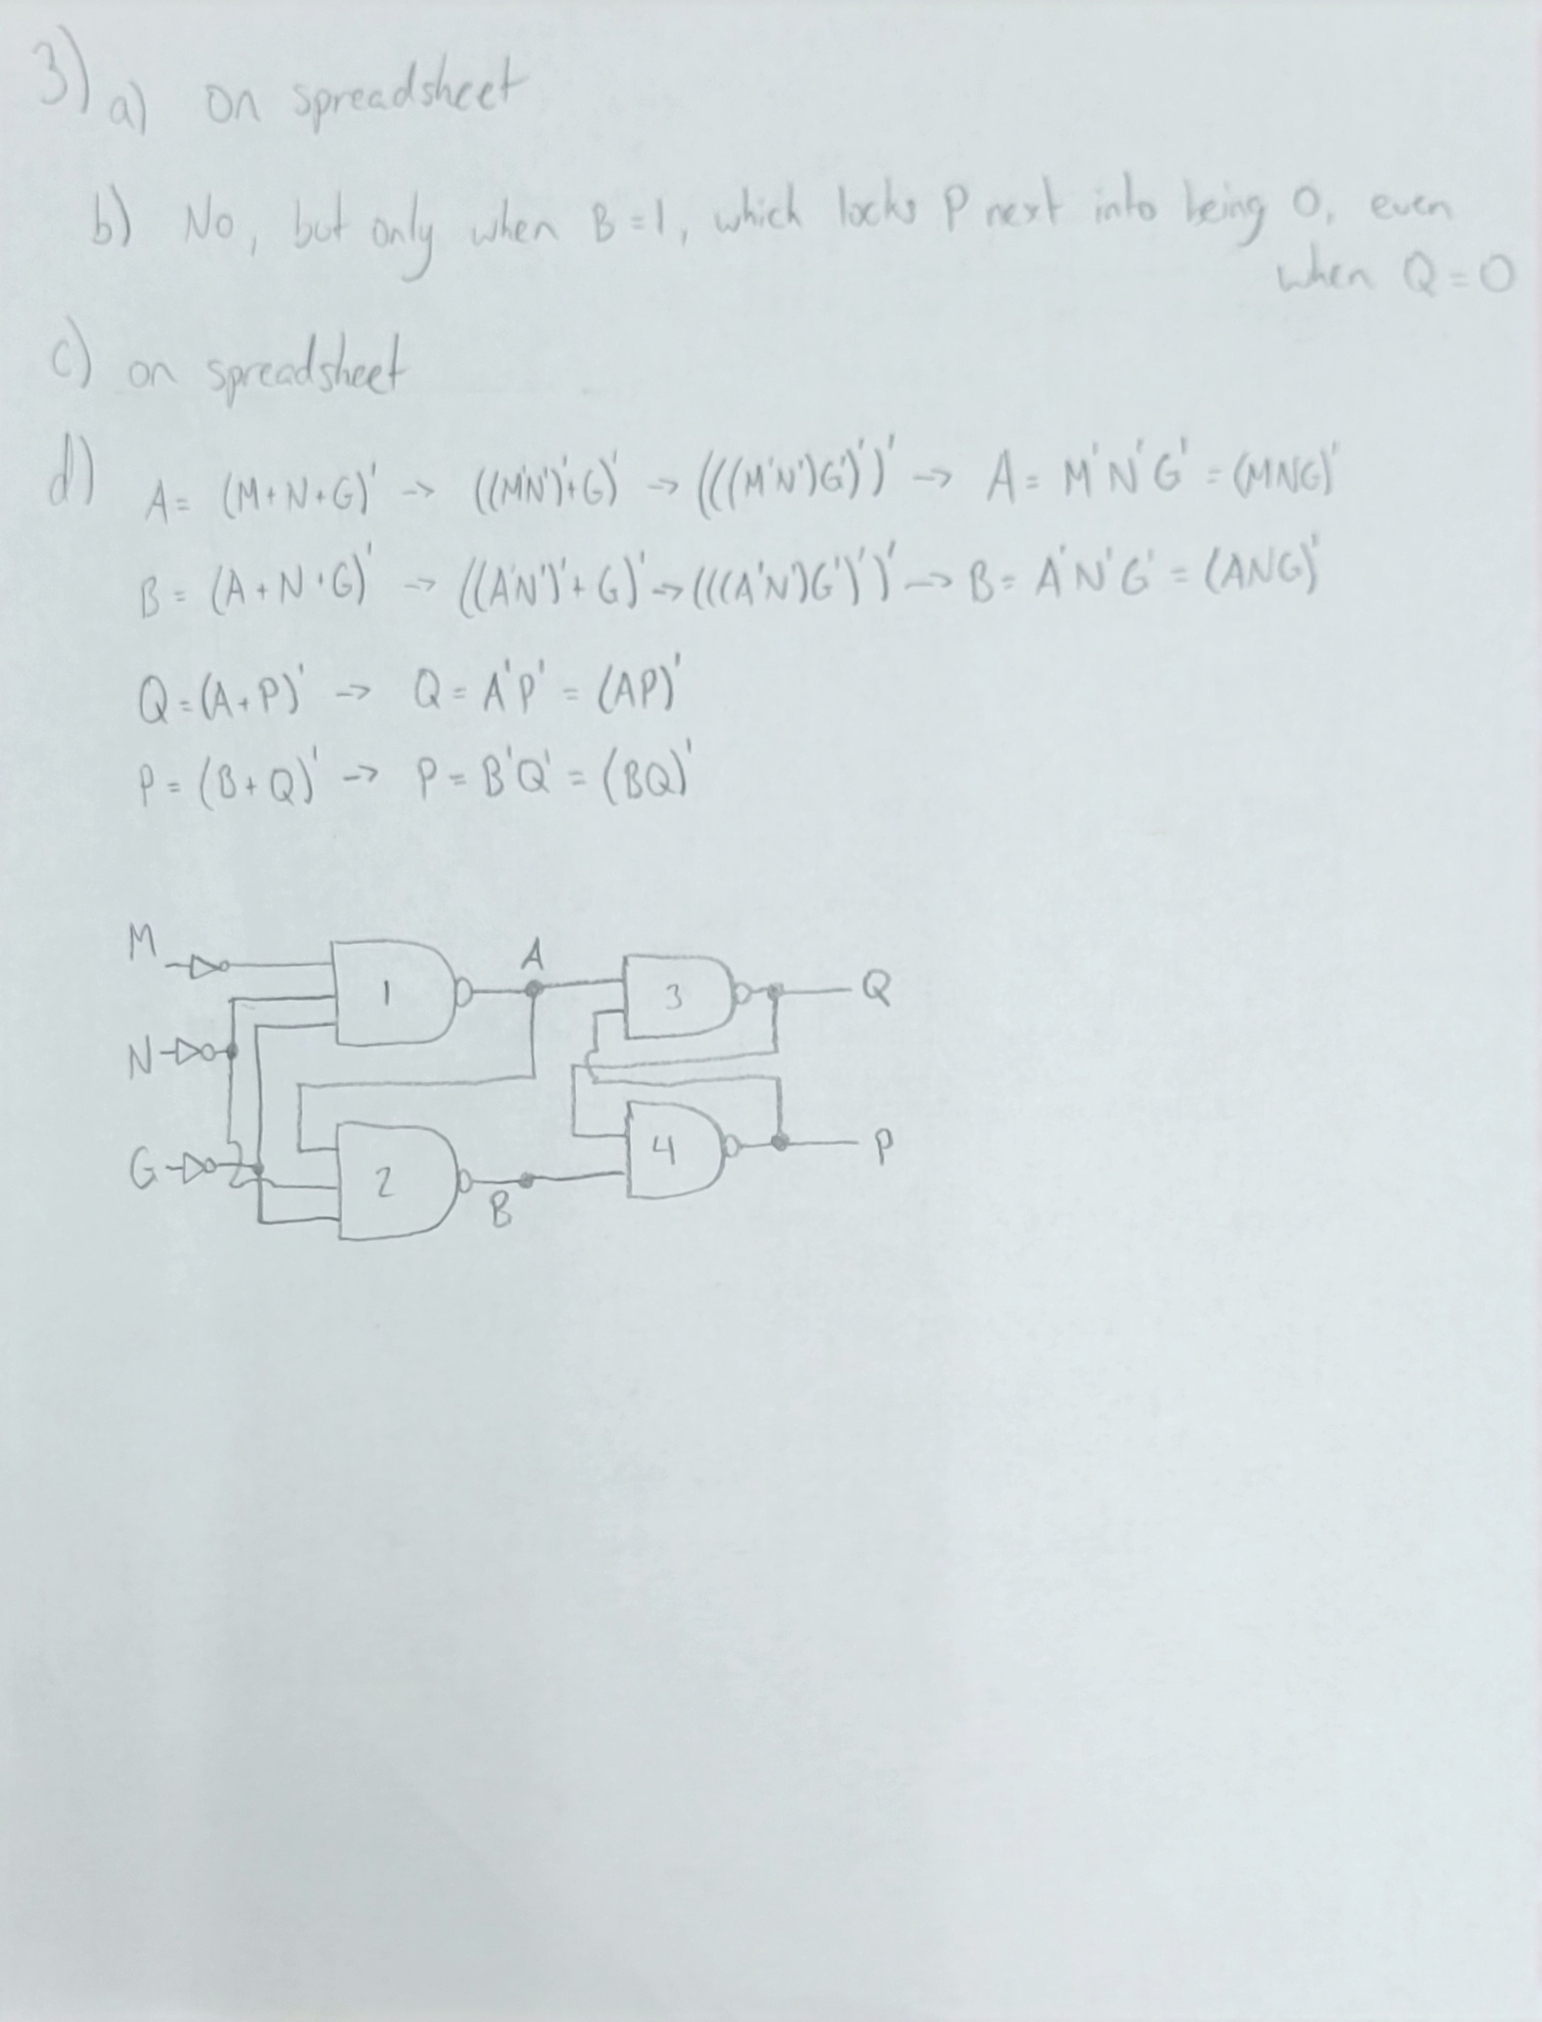 3) a) on spreadsheet
b) No, but only when B=1, which locks P next into being 0, even
when Q=0
c) on spreadsheet
d) A = (M+N+G)' -> ((M'N')'+G)' -> (((M'N')G')')' -> A = M'N'G' = (MNG)'
B = (A+N+G)' -> ((A'N')'+G)' -> (((A'N')G')')' -> B = A'N'G' = (ANG)'
Q = (A+P)' -> Q = A'P' = (AP)'
P = (B+Q)' -> P = B'Q' = (BQ)'
M 1 A 3 Q
N
G 2 B 4 P